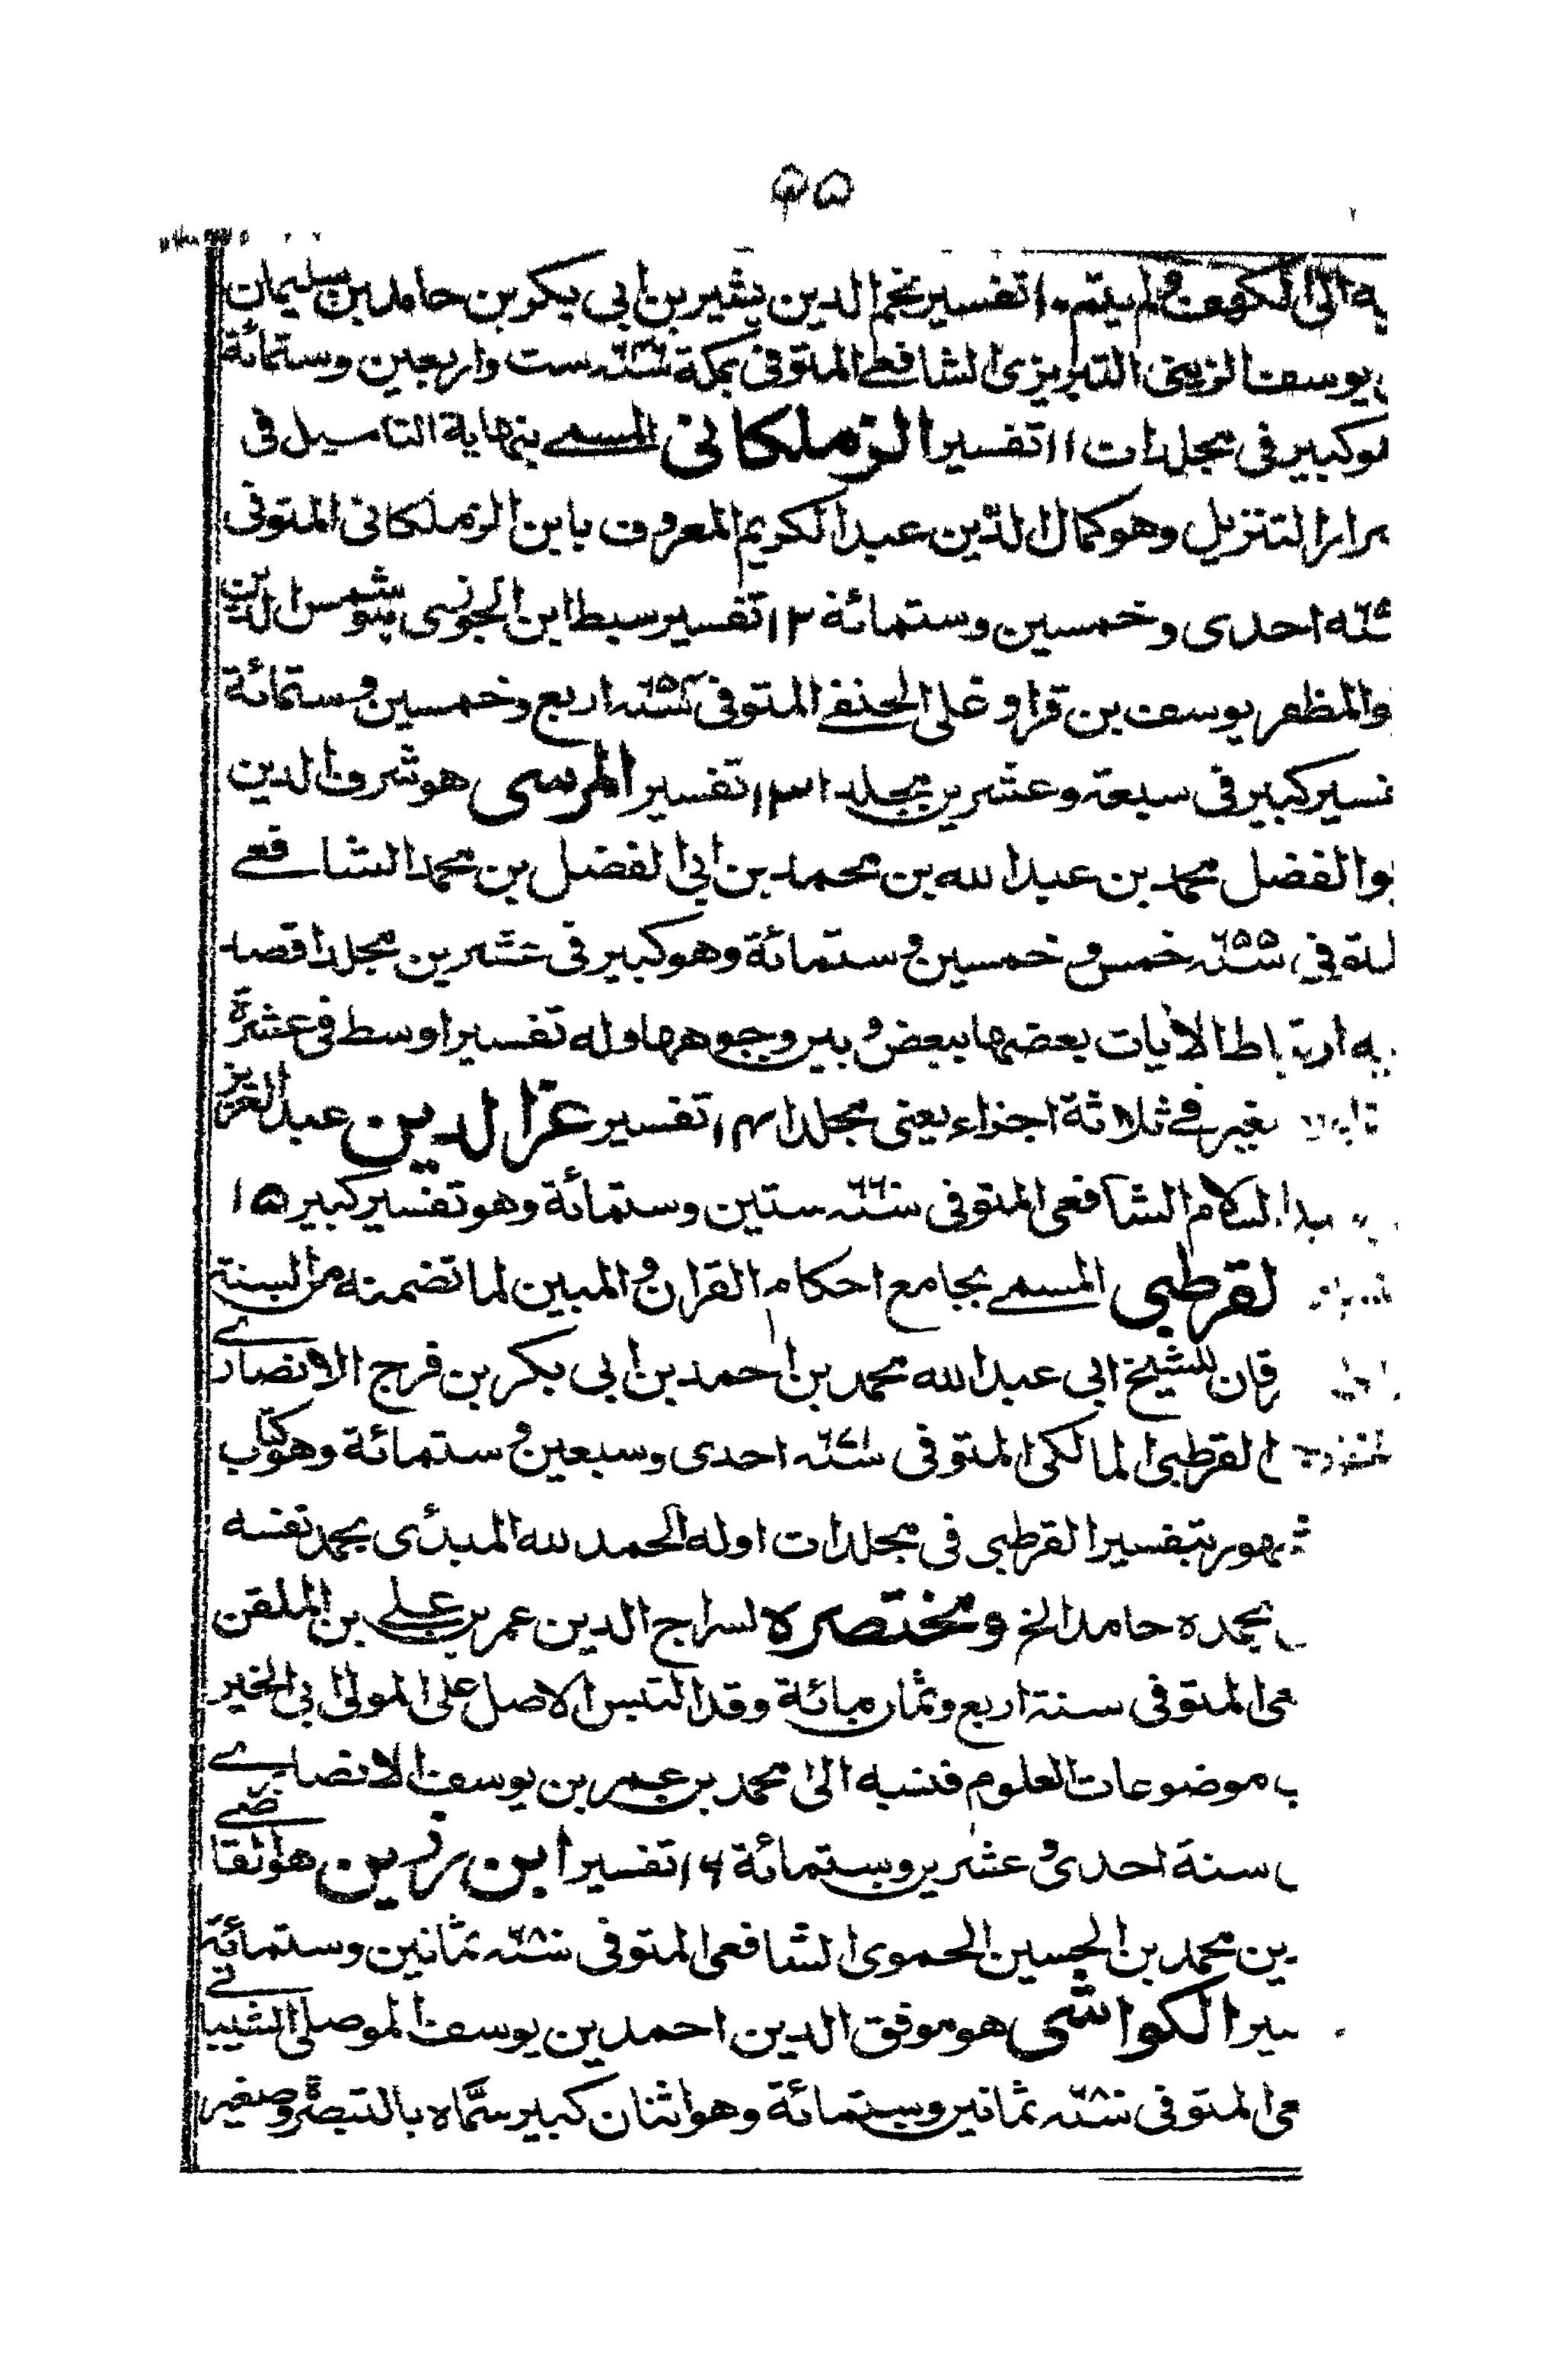 ۴۵
يه الى الكهف ولم يتم ۱۰ تفسير نجم الدين بشير بن ابي بكر بن حامد بن سليمان
يوسف الزينبى التبريزى الشافعى المتوفى بمكة سنه ۶۴۶ ست واربعين وستمائة
هو كبير فى مجلدات ۱۱ تفسير الزملكانى المسمى بنهاية التاميل فى
سرار التنزيل وهو كمال الدّين عبد الكريم المعروف بابن الزملكانى المتوفى
سنه احدى وخمسين وستمائة ۱۲ تفسير سبط ابن الجوزى شمس الدين
بو المظفر يوسف بن قزاوغلى الحنفى المتوفى سنه ۶۵۴ اربع وخمسين وستمائة
تفسير كبير فى سبعة وعشرين مجلدا ۱۳ تفسير المرسى هو شرف الدين
بو الفضل محمد بن عبد الله بن محمد بن ابى الفضل بن محمد الشافعى
المتوفى سنه ۶۵۵ خمس وخمسين وستمائة وهو كبير فى عشرين مجلدا قصد
يه ارتباط الايات بعضها ببعض وبين وجوهها وله تفسير اوسط فى عشرة
صغير فى ثلاثة اجزاء يعنى مجلدا ۱۴ تفسير عز الدين عبد العزيز
عبد السلام الشافعى المتوفى سنه ۶۶۰ ستين وستمائة وهو تفسير كبير ۱۵
لقرطبى المسمى بجامع احكام القران والمبين لما تضمنه من السنة
رقان للشيخ ابى عبد الله محمد بن احمد بن ابى بكر بن فرج الانصارى
القرطبى المالكى المتوفى سنه ۶۷۱ احدى وسبعين وستمائة وهو كتاب
شهور بتفسير القرطبى فى مجلدات اوله الحمد لله المبدئ بحمد نفسه
بحمده حامد الخ ومختصره لسراج الدين عمر بن على بن الملقن
عى المتوفى سنة اربع وثمان مائة وقد التبس الاصل على المولى ابى الخير
ب موضوعات العلوم فنسبه الى محمد بن عمر بن يوسف الانصارى
سنة احدى وعشرين وستمائة ۱۶ تفسير ابن رزين هو القاضى
ين محمد بن الحسين الحموى الشافعى المتوفى سنه ۶۸۰ ثمانين وستمائة
سير الكواشى هو موفق الدين احمد بن يوسف الموصلى الشيبانى
عى المتوفى سنه ۶۸۰ ثمانين وستمائة وهو اثنان كبير سمّاه بالتبصرة وصغير